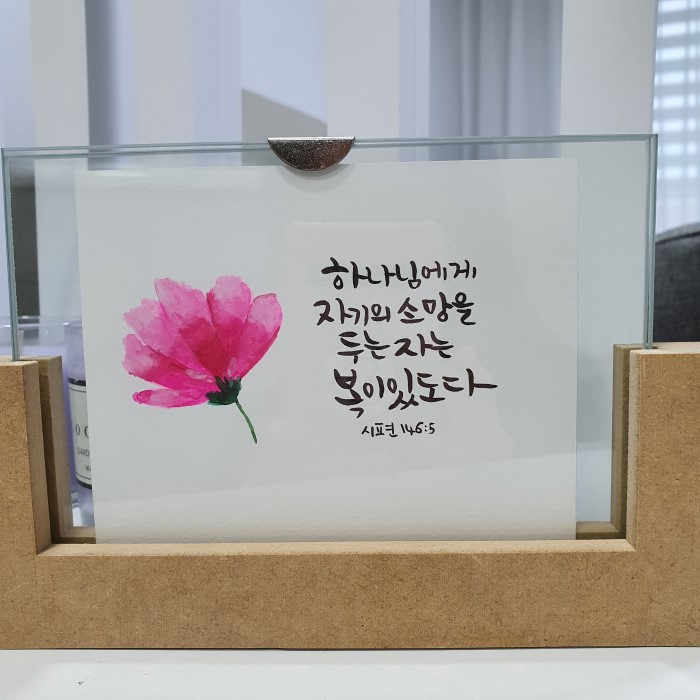 하나님에게
자기의 소망을
두는 자는
복이 있도다
시편 146:5